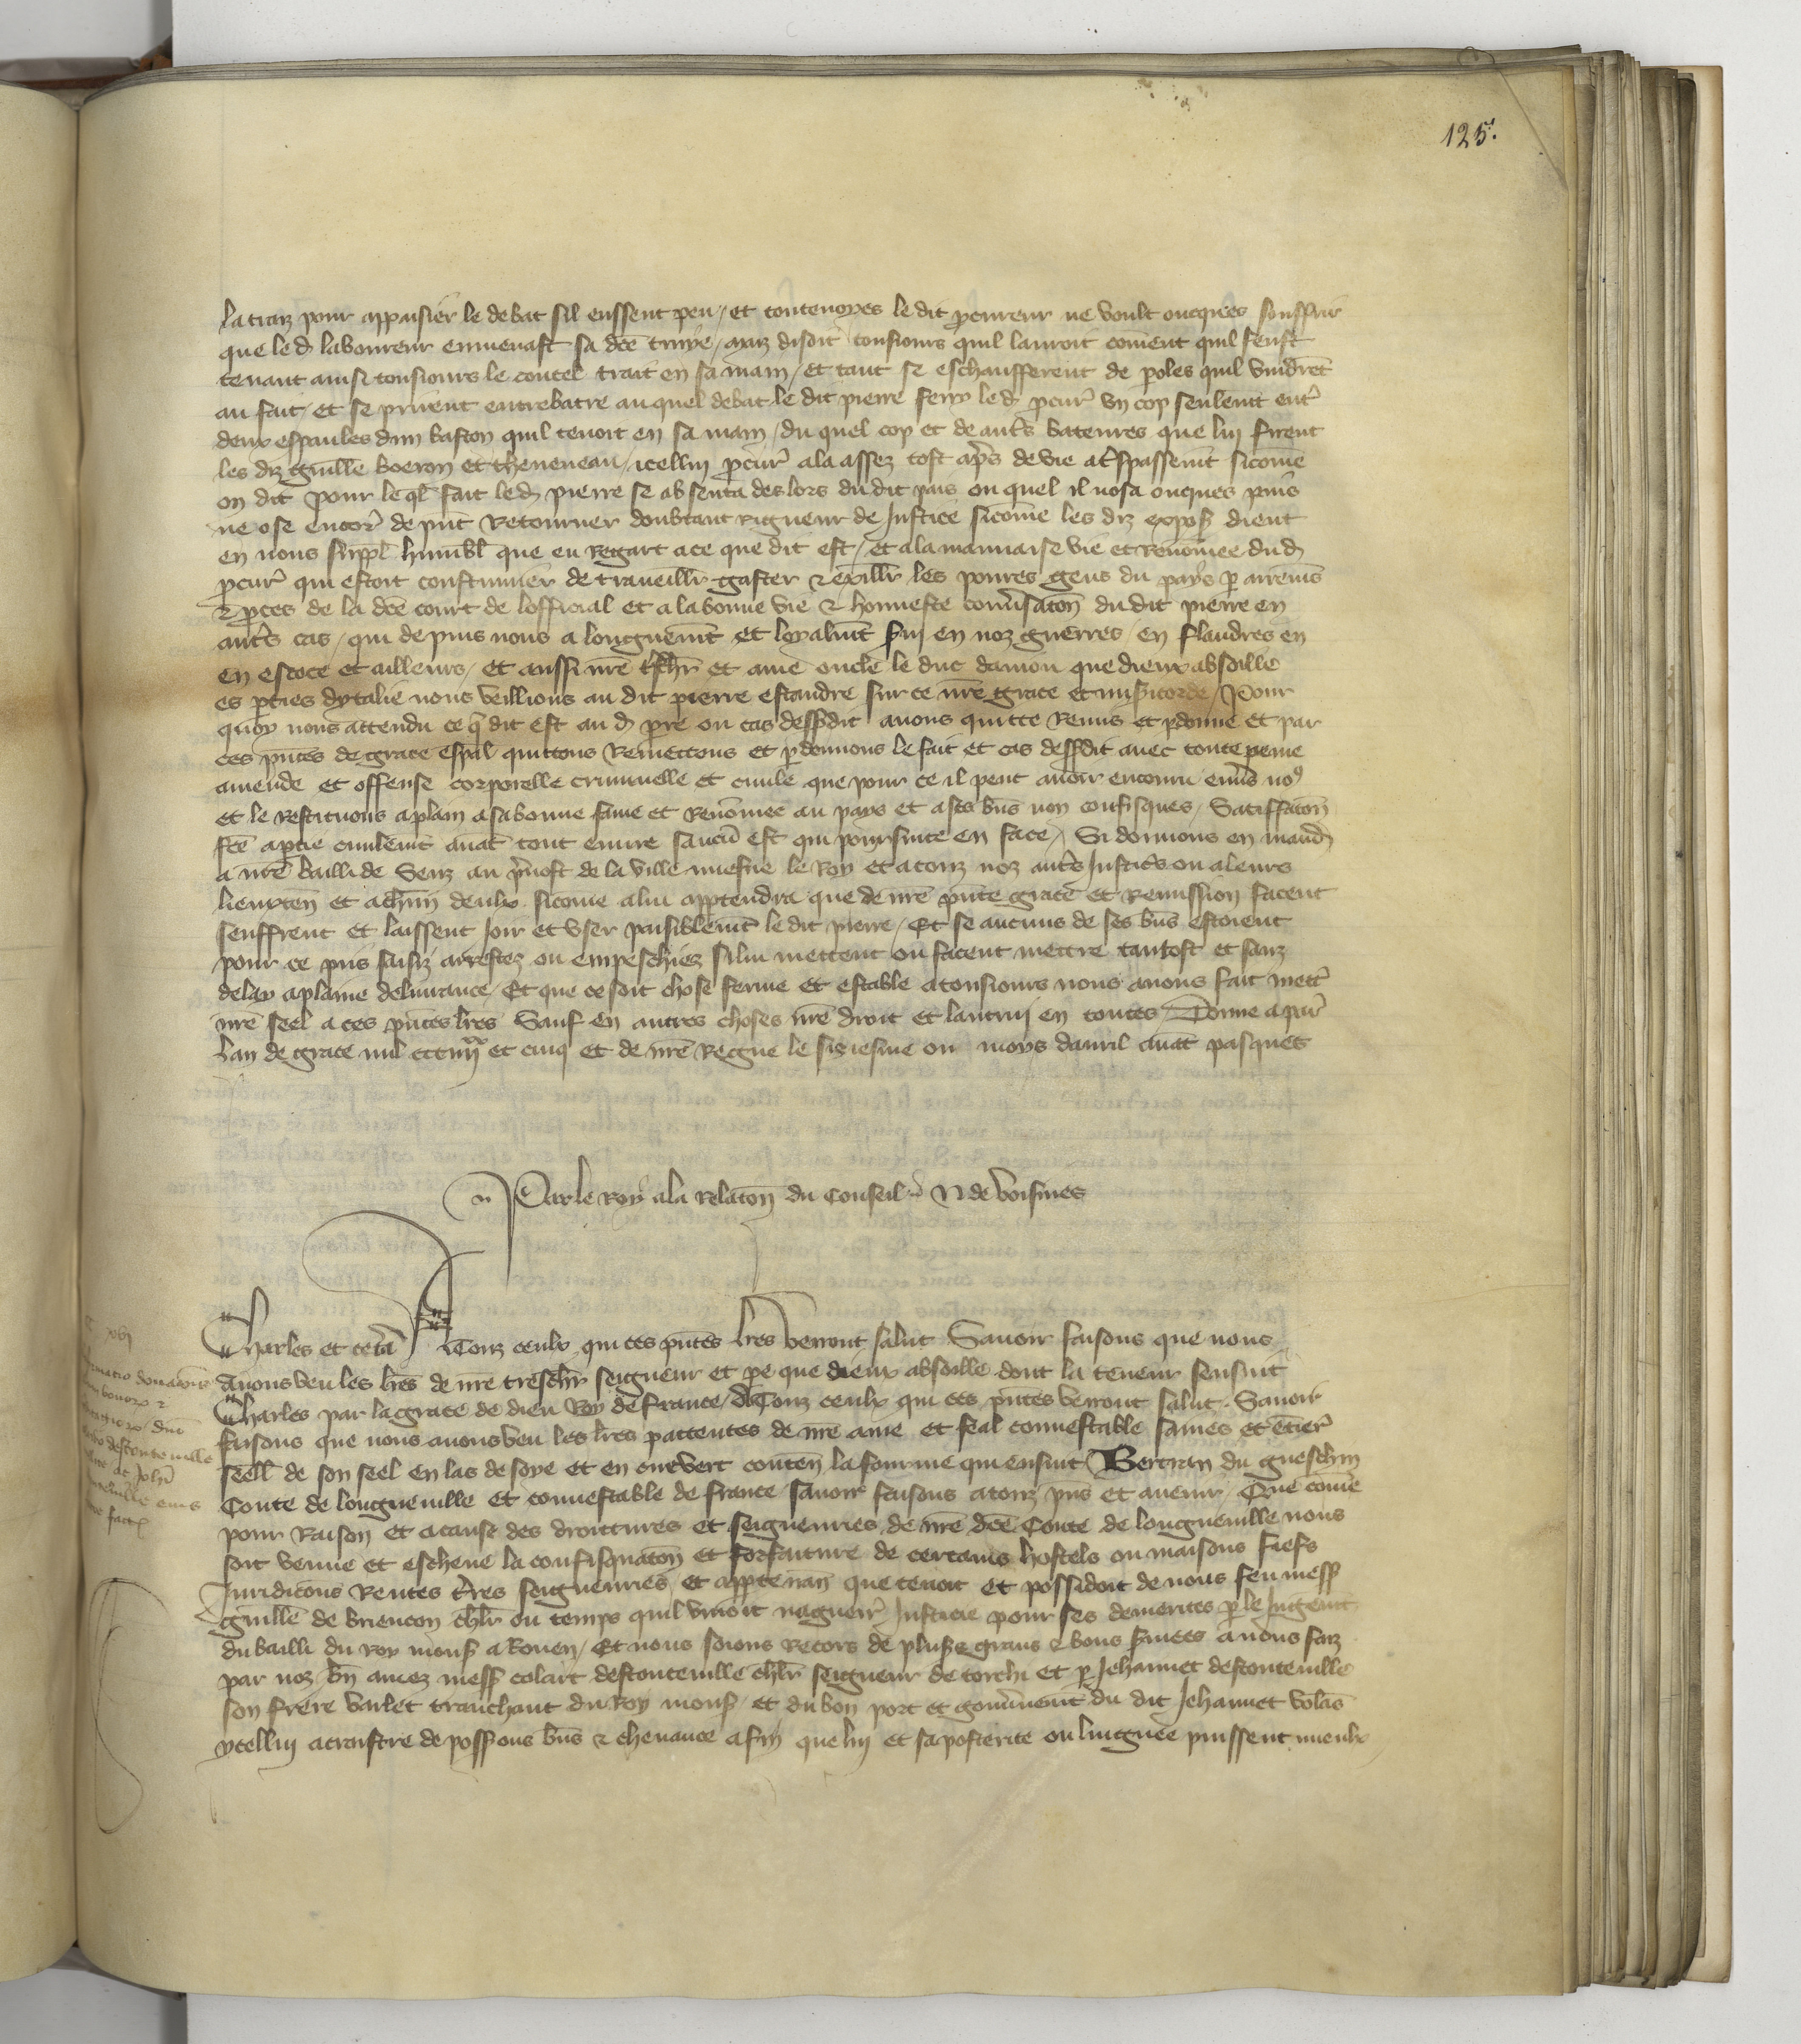 125.
la traiz pour appaisier le debat sil eussent peu / et toutevoyes le dit pcureur ne voult oncques souffrir
que le d laboureur enmenast sa dce truye / maiz disoit tousiours quil lauroit coment quil feust
tenant ainsi tousiours le coutel trait en sa main / et tant se eschaufferent de poles quil vindret
au fait / et se prirent entrebatre au quel debat le dit pierre fery le d pcur un cop seulemt entr
deux espaules dun baston quil tenoit en sa main / du quel cop et de autrs bateures que lui firent
les diz guille boeron et theneneau / icellui pcur ala assez tost aps de vie a tspassemt sicome
on dit Pour le ql fait le d pierre se absenta des lors du dit pais ou quel il nosa onques puis
ne ose encor de pnt Retourner doubtant Rigueur de Justice sicome les diz expos dient
en nous suppl humbl que eu Regart a ce que dit est / et a la mauvaise vie et Renomee du d
pcur qui estoit coustumier de traveillr gaster & exillr les poures gens du pays p arremis
& pces de la dce court de lofficial et a la bonne vie & honneste conusaton du dit pierre en
autrs cas / qui depuis nous a longuemt et loyalmt sui en noz guerres / en flandres en
en escoce et ailleurs / et aussi nre tschr et ame oncle le duc danjou que dieux absoille
es pties dytalie nous veillions au dit pierre estandre sur ce nre grace et misicorde / Pour
quoy nous attendu ce q dit est au d pre ou cas dessdit avons quitte Remis et pdonne et par
ces pntes de grace espal quittons Remettons et pdonnons le fait et cas dessdit avec toute peine
amende et offense corporelle criminelle et civile que pour ce il peut avoir encouru envs no9
et le Restituons a plain a sa bonne fame et Renomee au pays et a ses bns non confisques / Satiffaton
fce a ptie civilemt avat tout euvre saucu est qui poursuite en face / Si donnons en mand
a nre bailli de Senz au pvost de la ville neufve le Roy et a touz noz autrs Justicrs ou a leurs
lieuxten et a chun deulx sicome a lui apptendra que de nre pnte grace et Remission facent
seuffrent et laissent joir et user paisiblemt le dit pierre / Et se aucuns de ses bns estoient
pour ce pris saisiz arrestez ou empeschiez si lui mettent ou facent mettre tantost et sanz
delay a plaine delivrance / Et que ce soit chose ferme et estable a tousiours nous avons fait mettr
nre seel a ces pntes lres Sauf en autres choses nre droit et lautruy en toutes / Donne a par
lan de grace mil ccc iiiixx et cinq et de nre Regne le sixiesme ou moys davril avat pasques
Par le Roy a la relaton du conseil N de voisines
Charles et cetera A Touz ceulx qui ces pntes lres verront salut Savoir faisons que nous
Avons veu les lres de nre treschr seigneur et pe que dieux absoille dont la teneur sensuit
Charles par la grace de dieu Roy de France / A Touz ceulx qui ces pntes verront salut. Savoir
faisons que nous avons veu les lres pattentes de nre ame et feal connestable saines et etier
seell de son seel en las de soye et en cire vert conten la fourme qui ensuit Bertran du gueschin
Conte de longueville et connestable de france savoir faisons a touz pns et avenir / Que come
pour Raison et a cause des droittures et seigneuries de nre dce Conte de longueville nous
soit venue et escheue la confisquaton et forfaiture de certains hostels ou maisons fiefs
Juridicons Rentes tres seigneuries et apptenan que tenoit et possidoit de nous feu mess
guille de briencon chlr ou temps quil vivoit nagueir Justicie pour ses demerites p le Jugemt
du bailli du Roy mons a Rouen / Et nous soions Recors de pluss grans & bons svices a nous faiz
par noz bn amez mess colart destouteville chlr seigneur de torchi et p Jehannet destouteville
son frere varlet tranchant du Roy mons / et du bon port et gouvnemt du dit Jehannet volas
ycellui acraistre de possons bns & chevance afin que lui et sa posterite ou lingnee puissent mieulx